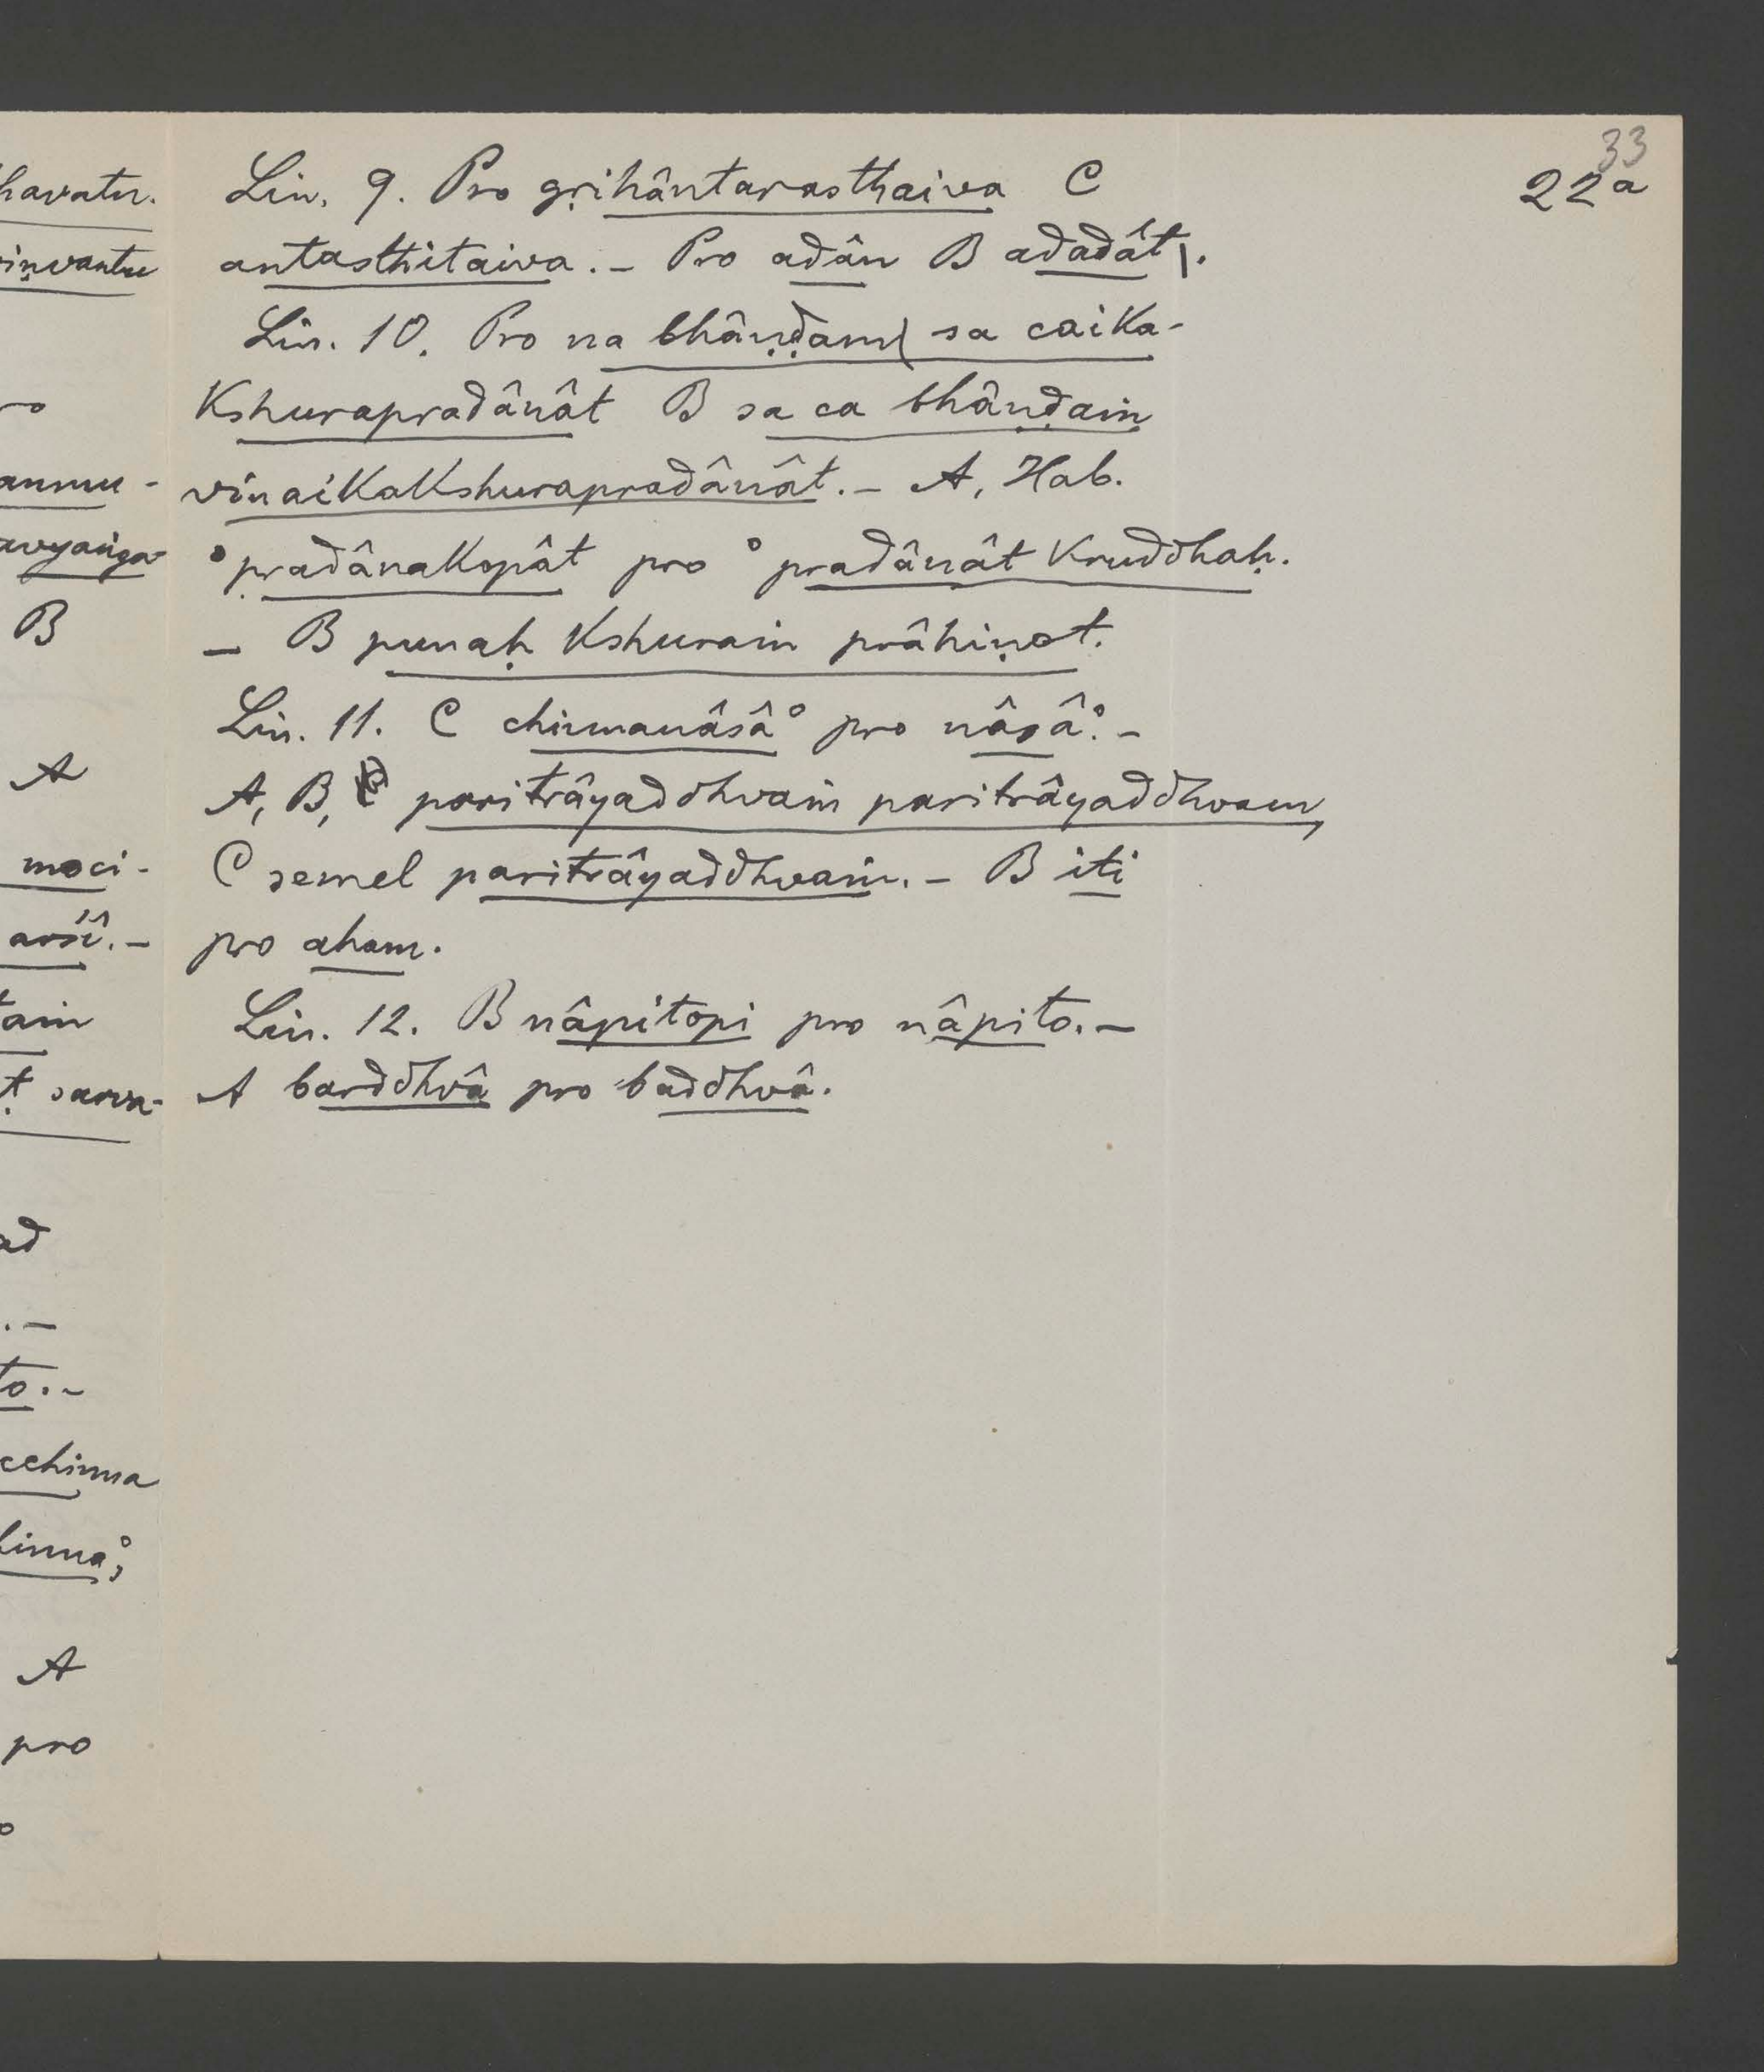 33
22a
Lin. 9. Pro gṛihântarasthaiva C
antasthitaiva. – Pro adân B adadât\.
Lin. 10. Pro na bhâṇḍam\ sa caika-
kshurapradânât B sa ca bhâṇḍaṁ
vinaikakshurapradânât. – A, Hab.
°pradânakopât pro °pradânât kruddhaḥ.
– B punaḥ kshuraṁ prâhiṇot.
Lin. 11. C chinnanâsâ° pro nâsâ°. –
A, B, paritrâyaddhvaṁ paritrâyaddhvam,
C semel paritrâyaddhvaṁ. – B iti
pro aham.
Lin. 12. B nâpitopi pro nâpito. –
A barddhvâ pro baddhvâ.
havatu.
iṇvantu
ro
anmu-
avyaṅga-
B
A
moci-
arśî. –
taṁ
ṭ sarva-
ad
. –
to. –
cchinna
hinna°,
A
pro
o